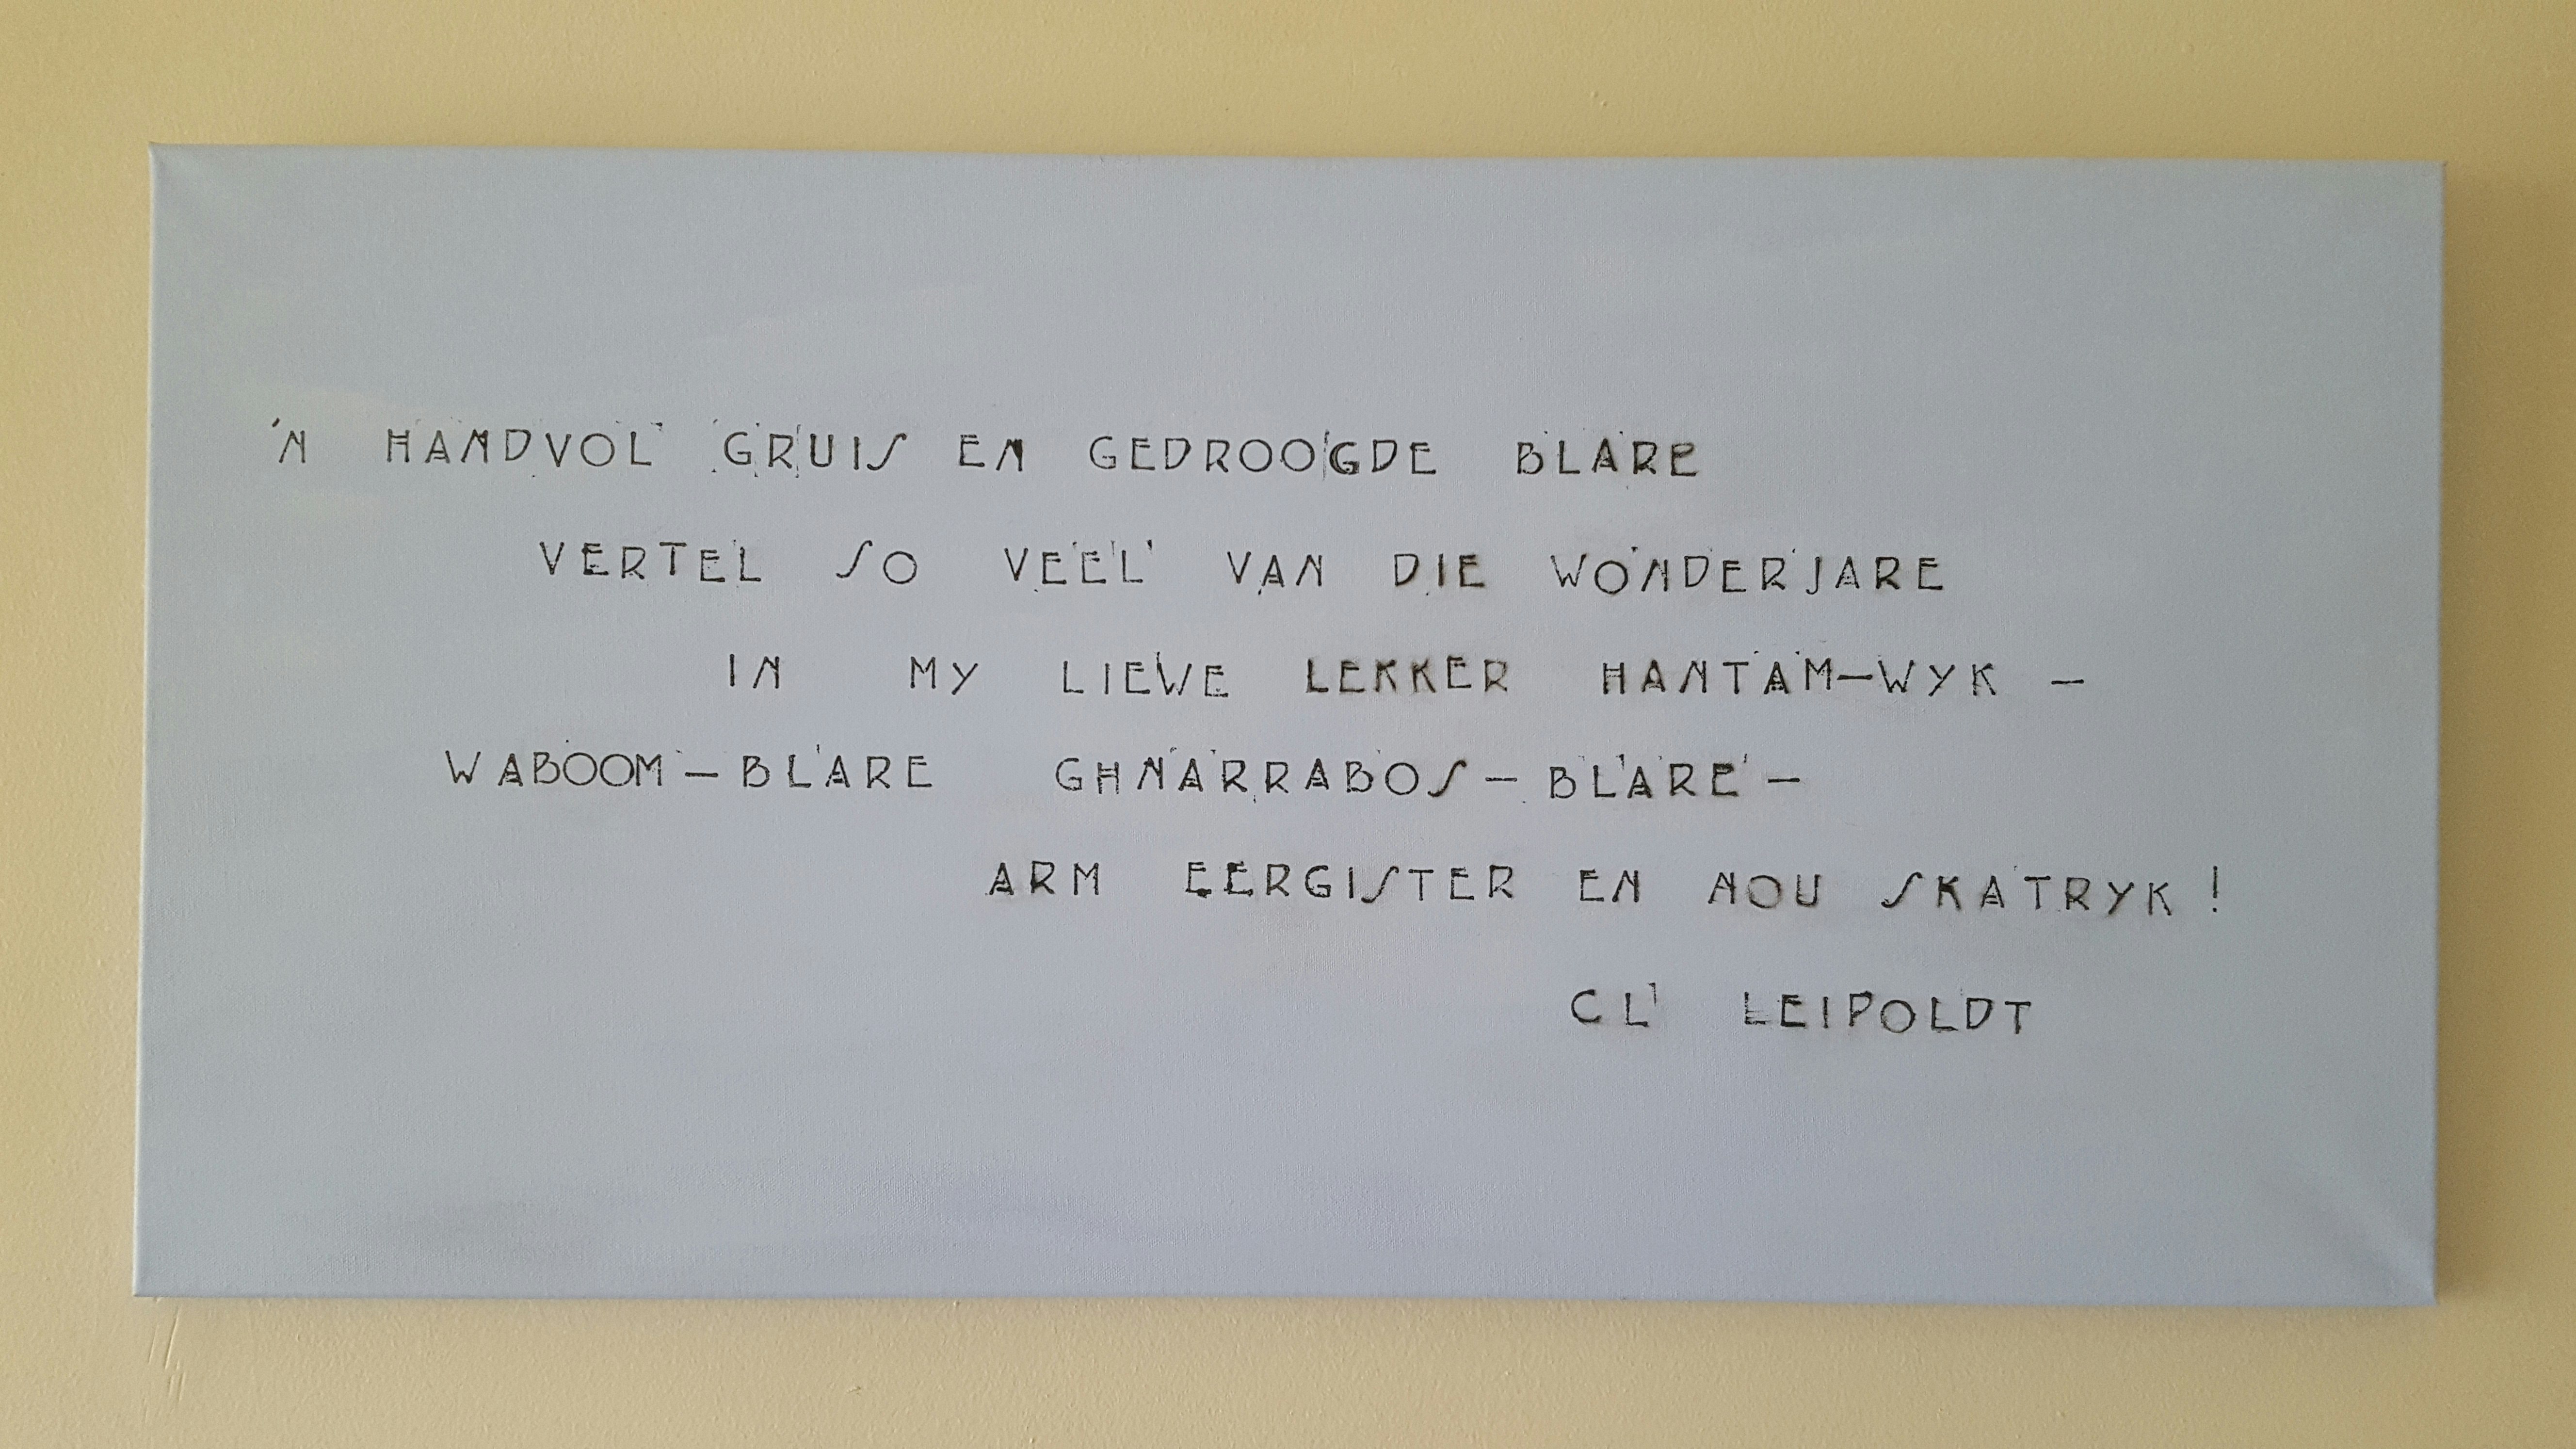 'N HANDVOL GRUIS EN GEDROOGDE BLARE
VERTEL SO VEEL VAN DIE WONDERJARE
IN MY LIEWE LEKKER HANTAM-WYK -
WABOOM-BLARE GHNARRABOS-BLARE-
ARM EERGISTER EN NOU SKATRYK!
CL LEIPOLDT